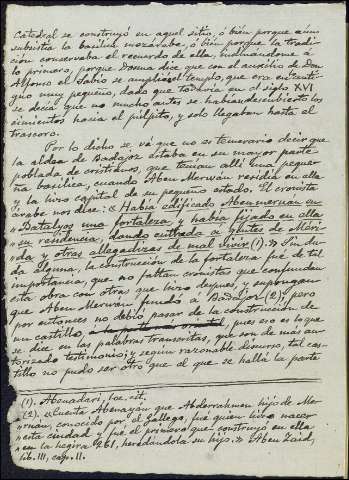 Catedral se construyó en aquel sitio, ó bien porque aún
subsistía la basílica mozárabe, ó bien porque la tradi-
ción conservaba el recuerdo de ella. Inclinándome á
lo primero, porque Dosma dice que con el auxilio de Don
Alfonso el Sabio se amplió el templo, que era en lo anti-
guo muy pequeño, dado que todavía en el siglo XVI
se decía que no mucho antes se habían descubierto los
cimientos hacia el púlpito, y solo llegaban hasta el
trascoro.
Por lo dicho se vé que no es temerario decir que
la aldea de Badajoz estaba en su mayor parte
poblada de cristianos, que tenían allí una peque-
ña basílica, cuando Aben Merwán residía en ella
y la hizo capital de su pequeño estado. El cronista
árabe nos dice: «Había edificado Abenmeruan en
»Batalyos una fortaleza y había fijado en ella
»su residencia, dando entrada á gentes de Méri-
»da y otras allegadizas de mal vivir (1).» Sin du-
da alguna, la construcción de la fortaleza fué de tal
importancia, que no faltan cronistas que confunden
esta obra con otras que hizo después, y supongan
que Aben Merwán fundó á Badajoz (2), pero
por entonces no debió pasar de la construcción de
un castillo, pues eso es lo que
se dice en las palabras transcritas, que son de más au-
torizado testimonio; y según razonable discurso, tal cas-
tillo no pudo ser otro que el que se halla la parte
(1). Abenadari, loc. cit.
(2). «Cuenta Abenayán que Abderrahmen hijo de Me-
ruan, conocido por el Gallego, fué quien hizo nacer
esta ciudad y fué el primero que construyó en ella
en la hegira 261, heredándola su hijo.» Aben Zaid,
lib. III, cap. II.